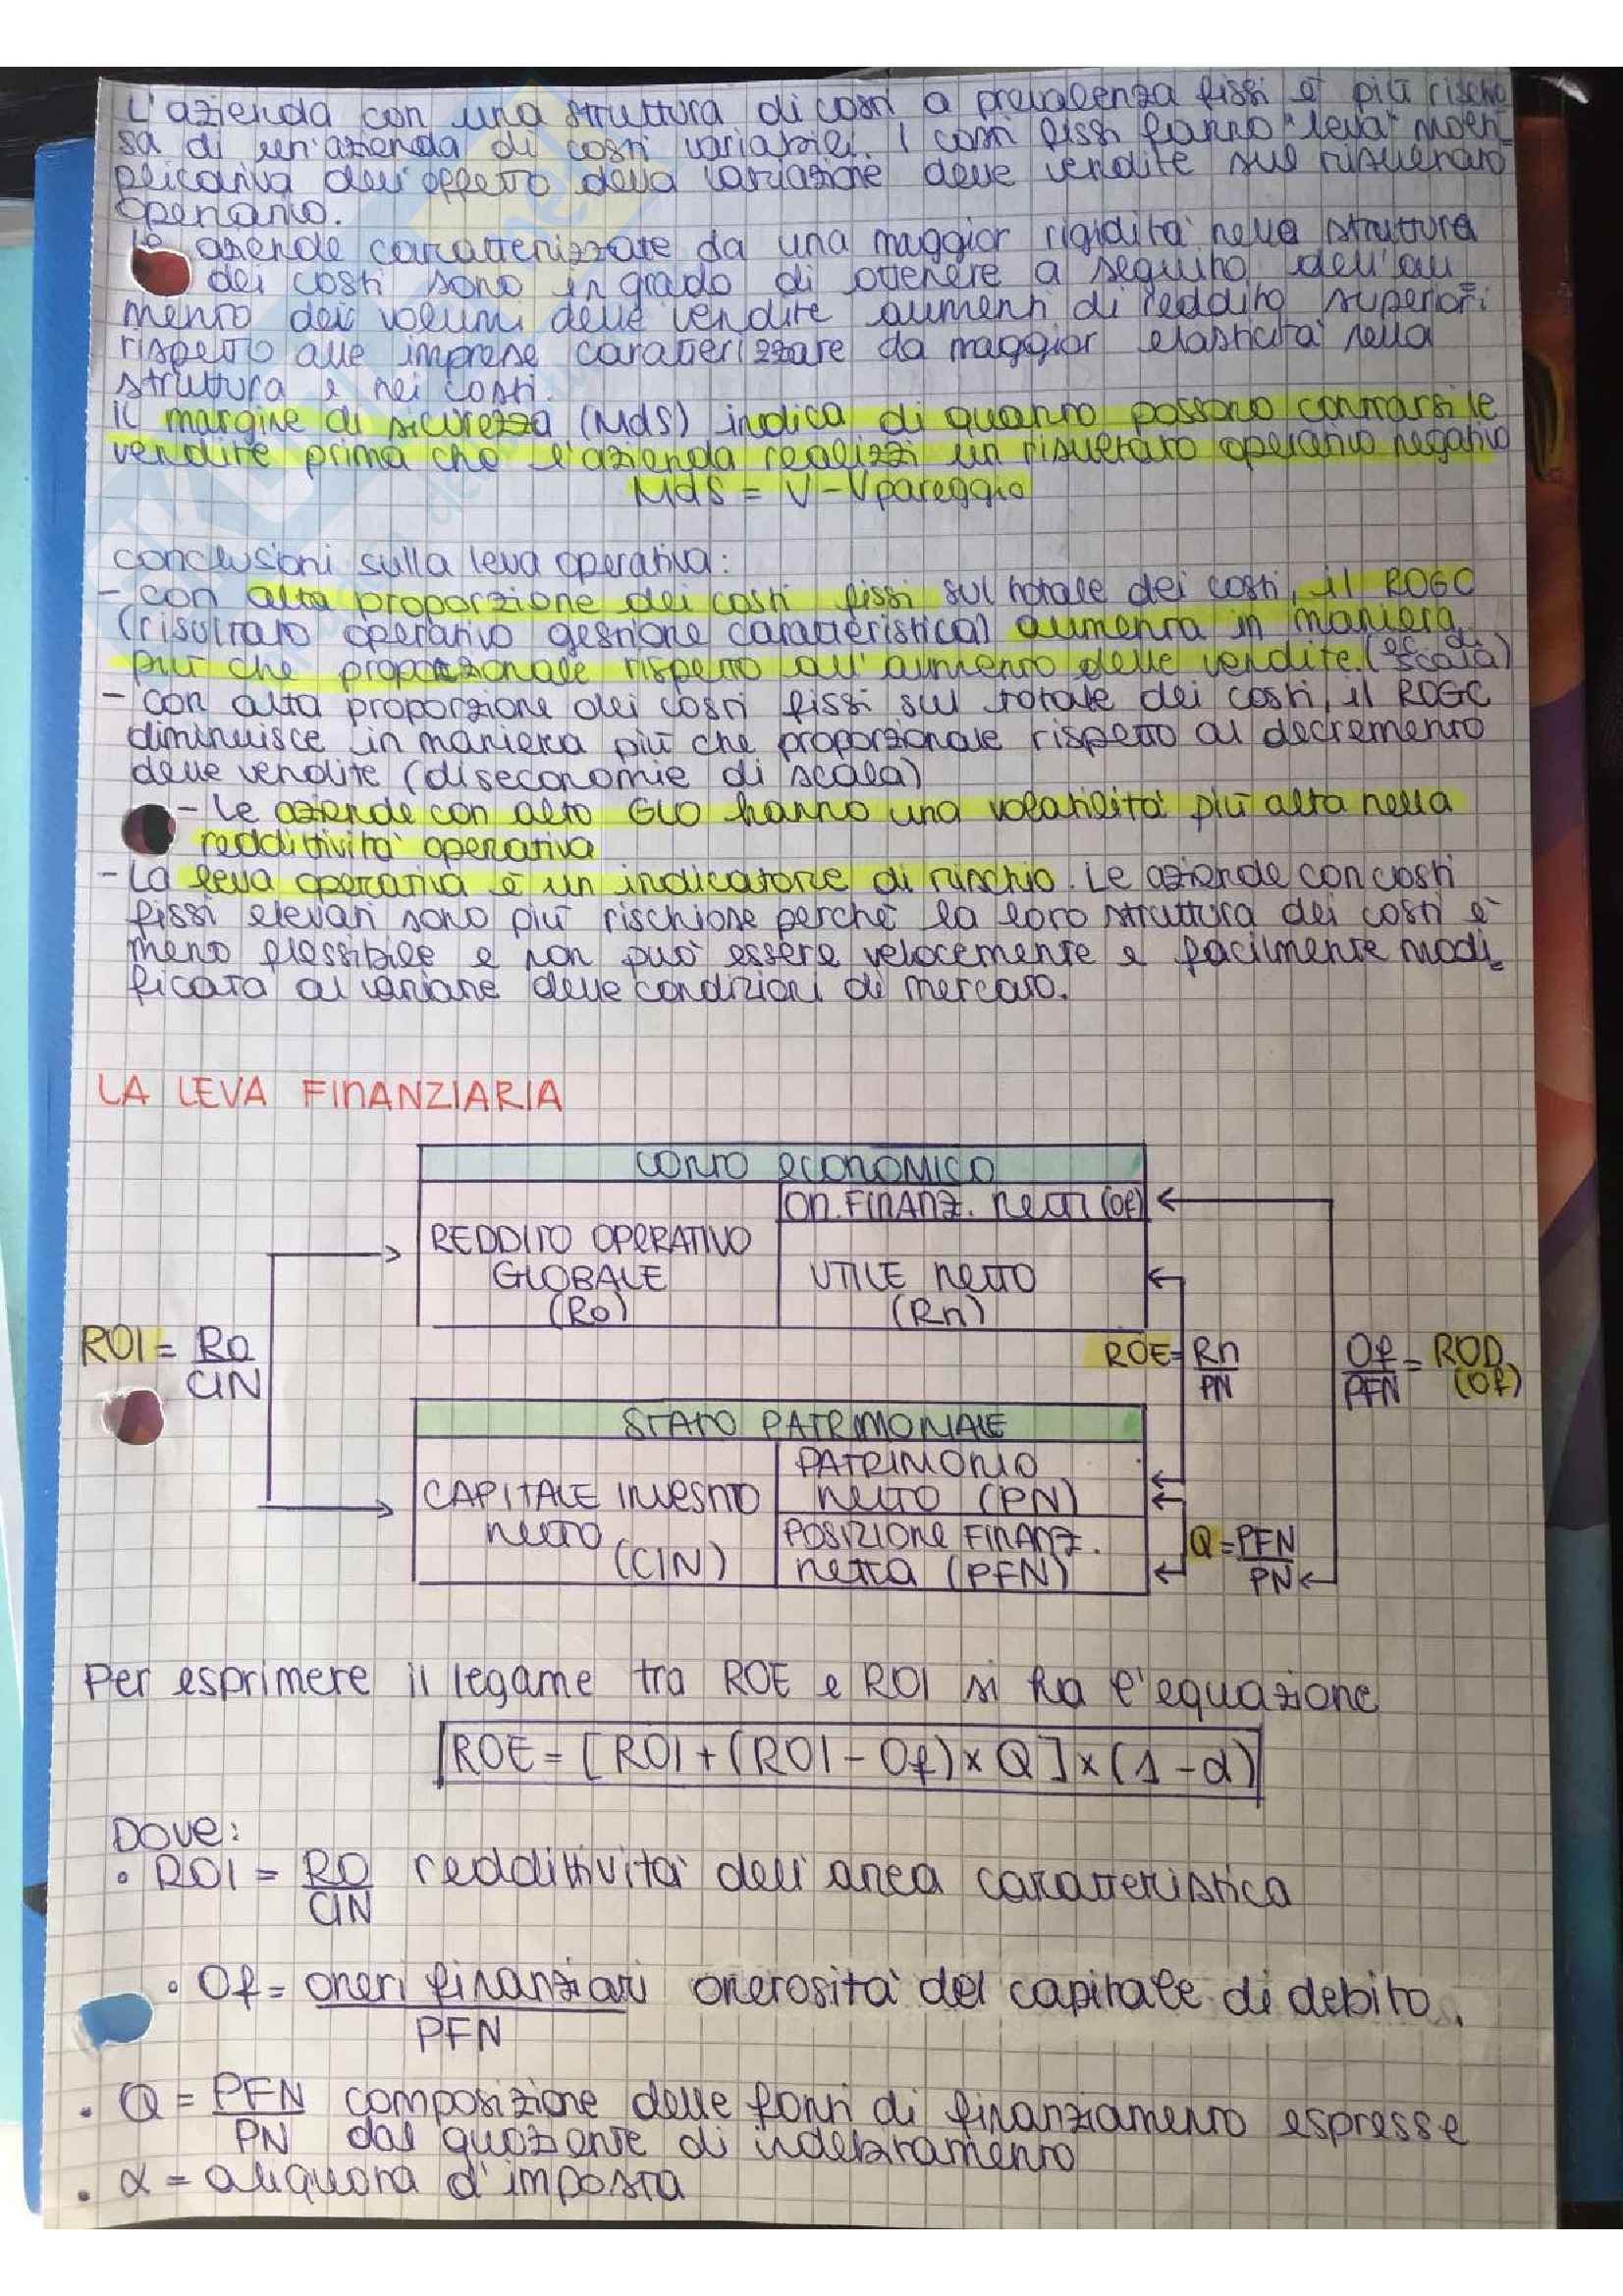 L'azienda con una struttura di costi a prevalenza fissi è più rischio
sa di un'azienda di costi variabili. I costi fissi fanno "leva" molti_
plicativa dell'effetto della variazione delle vendite sul risultato
operativo.
Le aziende caratterizzate da una maggior rigidità nella struttura
dei costi sono in grado di ottenere a seguito dell'au_
mento dei volumi delle vendite aumenti di reddito superiori
rispetto alle imprese caratterizzate da maggior elasticità nella
struttura e nei costi.
il margine di sicurezza (MdS) indica di quanto possono contrarsi le
vendite prima che l'azienda realizzi un risultato operativo negativo
MdS = V - Vpareggio
conclusioni sulla leva operativa:
- con alta proporzione dei costi fissi sul totale dei costi, il ROGC
(risultato operativo gestione caratteristica) aumenta in maniera
più che proporzionale rispetto all'aumento delle vendite. (ec. di scala)
- con alta proporzione dei costi fissi sul totale dei costi, il ROGC
diminuisce in maniera più che proporzionale rispetto al decremento
delle vendite (diseconomie di scala)
- Le aziende con alto GLO hanno una volatilità più alta nella
redditività operativa
- La leva operativa è un indicatore di rischio. Le aziende con costi
fissi elevati sono più rischiose perché la loro struttura dei costi è
meno flessibile e non può essere velocemente e facilmente modi_
ficata al variare delle condizioni di mercato.
LA LEVA FINANZIARIA
CONTO ECONOMICO
ON. FINANZ. NETTI (OF)
REDDITO OPERATIVO
GLOBALE
(RO)
UTILE NETTO
(Rn)
ROI = RO
CIN
ROE = Rn
PN
Of = ROD
PFN (Of)
STATO PATRIMONIALE
PATRIMONIO
NETTO (PN)
CAPITALE INVESTITO
NETTO
(CIN)
POSIZIONE FINANZ.
NETTA (PFN)
Q = PFN
PN
Per esprimere il legame tra ROE e ROI si ha l'equazione
ROE = [ROI + (ROI - Of) x Q] x (1 - α)
Dove:
• ROI = RO redditività dell'area caratteristica
CIN
• Of = oneri finanziari onerosità del capitale di debito.
PFN
• Q = PFN composizione delle fonti di finanziamento espresse
PN dal quoziente di indebitamento
• α = aliquota d'imposta